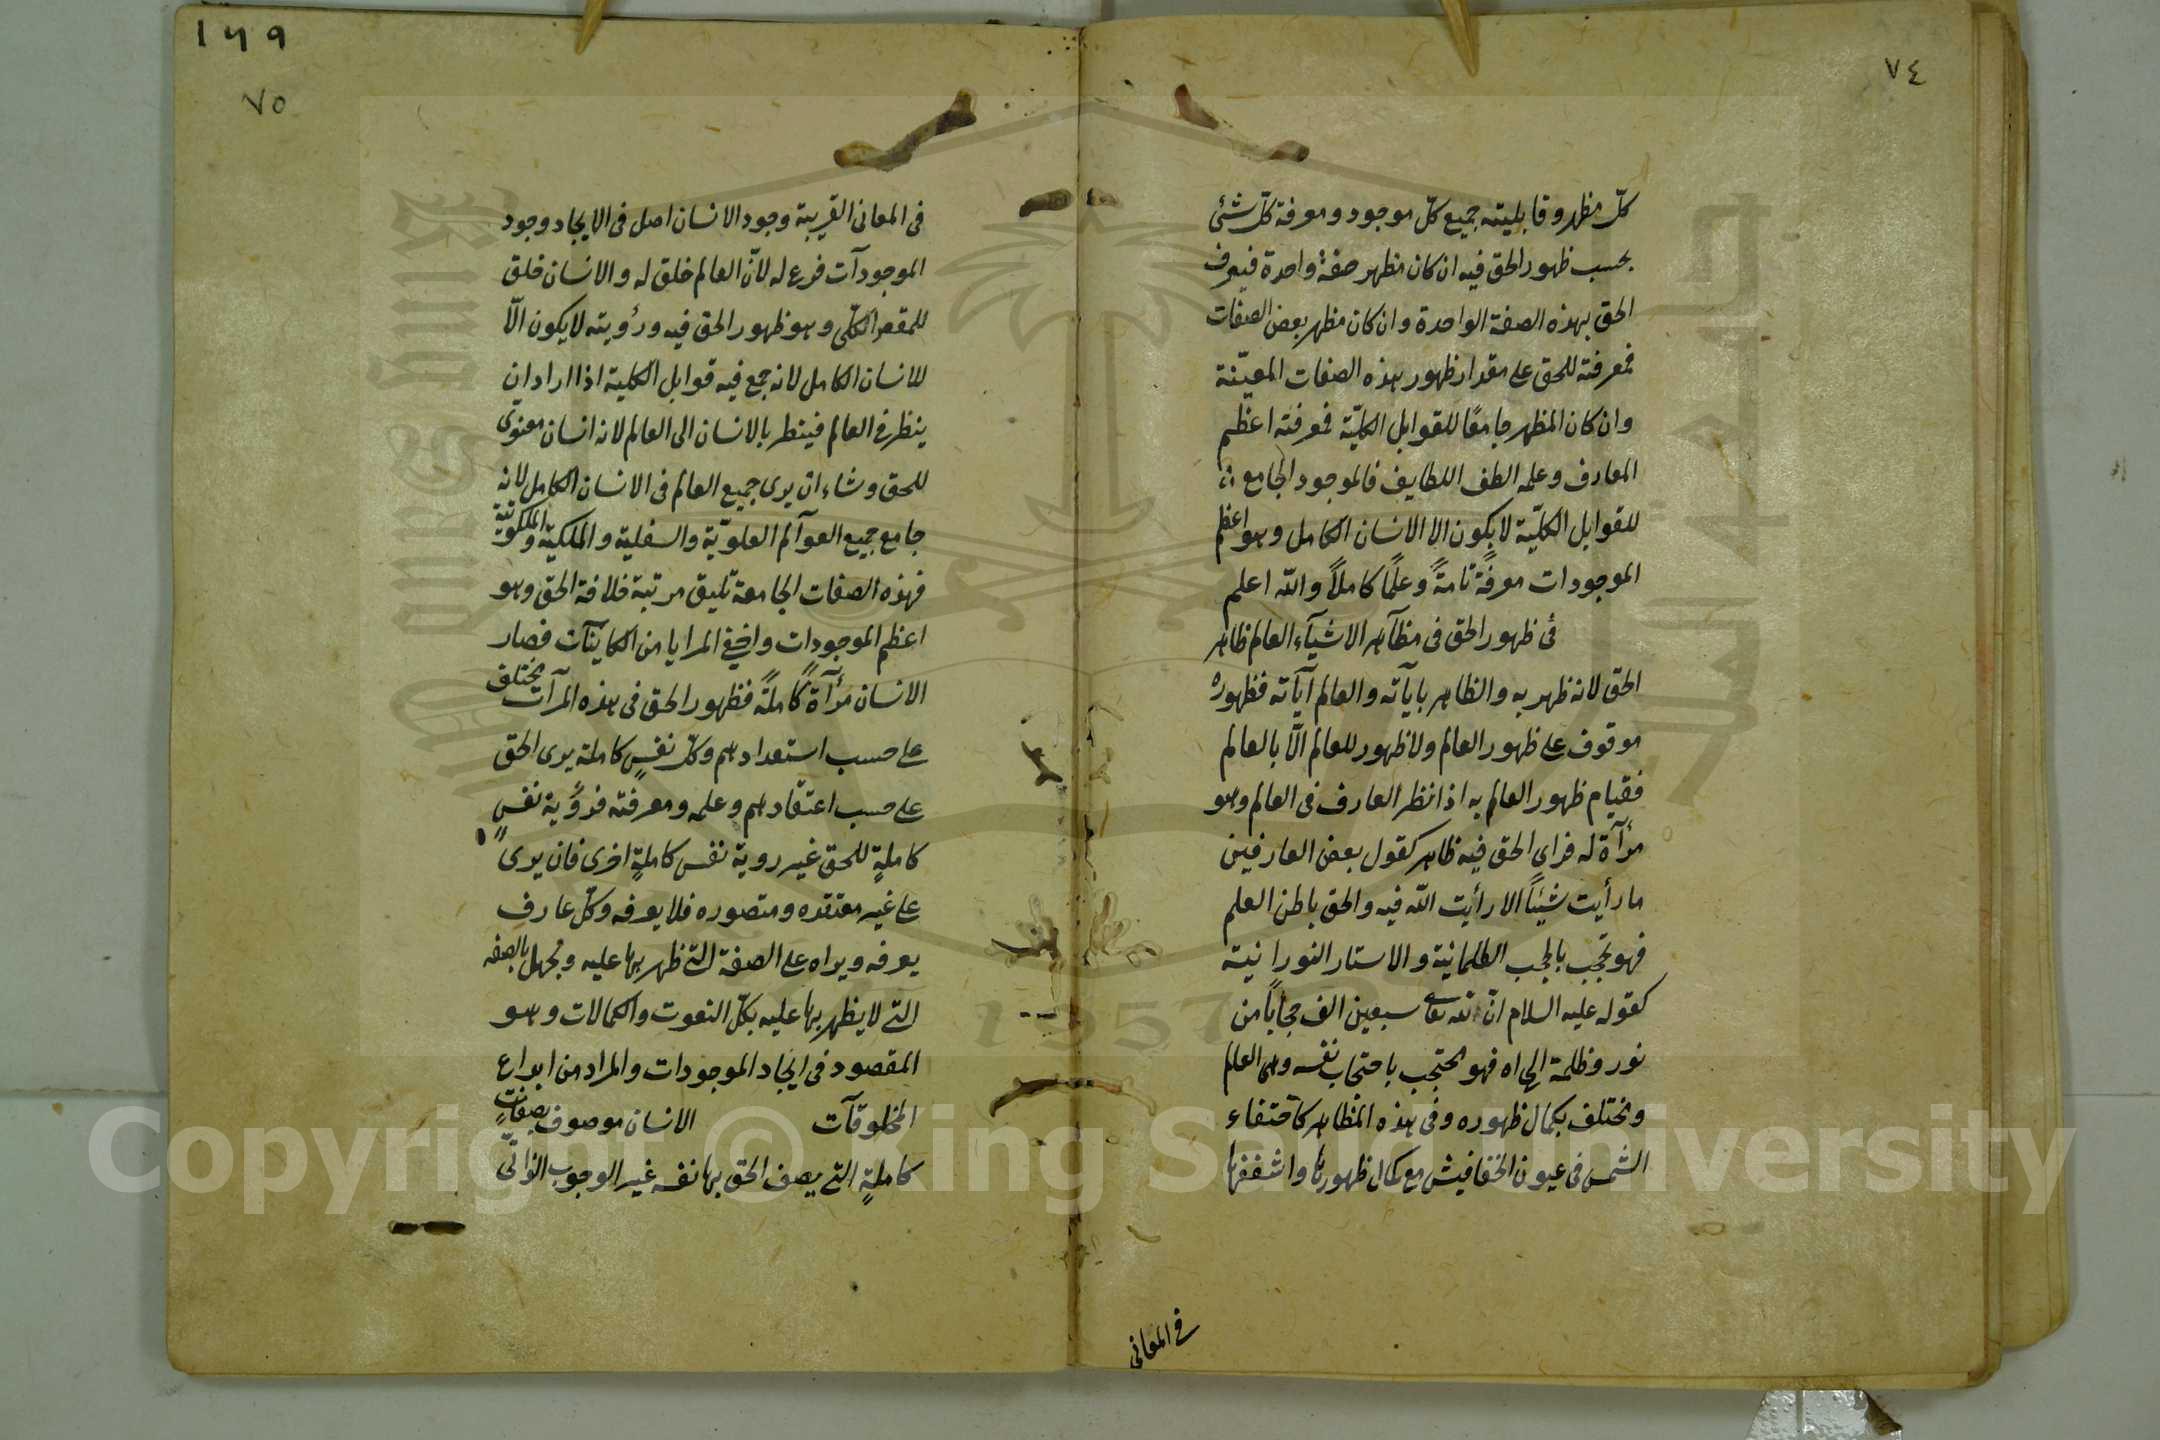 ٧٤
كلّ مظهر وقابليته جميع كلّ موجود ومعرفة كلّ شئ
بحسب ظهور الحق فيه ان كان مظهر صفة واحدة فيعرف
الحق بهذه الصفة الواحدة وان كان مظهر بعض الصفات
فمعرفته للحق على مقدار ظهور هذه الصفات المعيّنة
وان كان المظهر جامعًا للقوابل الكليّة فمعرفته اعظم
المعارف وعلمه الطف اللطايف فالموجود الجامع
للقوابل الكليّة لا يكون الا الانسان الكامل وهو اعظم
الموجودات معرفةً تامةً وعلمًا كاملاً والله اعلم
فى ظهور الحق فى مظآهر الاشيآء العالم ظاهر
الحق لانه ظهر به والظاهر بآياته والعالم آياته فظهوره
موقوف على ظهور العالم ولا ظهور للعالم الّا بالعالم
فقيام ظهور العالم به اذا نظر العارف فى العالم وهو
مرآة له فراى الحق فيه ظاهر كقول بعض العارفين
ما رأيت شيئاً الا رأيت الله فيه والحق باطن العلم
فهو تحجّب بالحجب الظلمانية والاستار النورانية
كقوله عليه السلام انّ لله تعالى سبعين الف حجاباً من
نور وظلمة الى اه فهو محتجب باحتجاب نفسه وهى العالم
ومختلف بكمال ظهوره وفى هذه المظاهر كاختفاء
الشمس فى عيون الخفافيش مع كمال ظهورها واشففها
فى المعانى
١٦٩
٧٥
فى المعانى القريبة وجود الانسان اصل فى الايجاد وجود
الموجودآت فرع له لانّ العالم خلق له والانسان خلق
للمقصر الكلّى وهو ظهور الحق فيه ورؤيته لا يكون الّا
للانسان الكامل لانه جمع فيه قوابل الكلية اذا اراد ان
ينظر فى العالم فينظر بالانسان الى العالم لانه انسان معنوىّ
للحق وشاء ان يرى جميع العالم فى الانسان الكامل لانه
جامع جميع العوآلم العلويّة والسفلية والملكية والملكوتية
فهذه الصفات الجامعة تليق مرتبة خلافة الحق وهو
اعظم الموجودات واضيئ المرايا من الكاينآت فصار
الانسان مرآةً كاملةً فظهور الحق فى هذه المرآت يختلف
على حسب استعدادهم وكلّ نفسٍ كاملة يرى الحق
على حسب اعتقادهم وعلمه ومعرفته فرؤية نفسٍ
كاملةٍ للحق غير روية نفس كاملةٍ اخرى فان يرى
على غير معتقده ومتصوره فلا يعرفه وكلّ عارف
يعرفه ويراه على الصفة التى ظهر بها عليه ويجهل بالصفه
التى لا يظهر بها عليه بكلّ النعوت والكمالات وهو
المقصود فى ايجاد الموجودات والمراد من ابداع
المخلوقآت الانسان موصوف بصفاتٍ
كاملةٍ التى يصف الحق بها نفسه غير الوجوب الذاتىّ
Copyright © King Saud University
1957